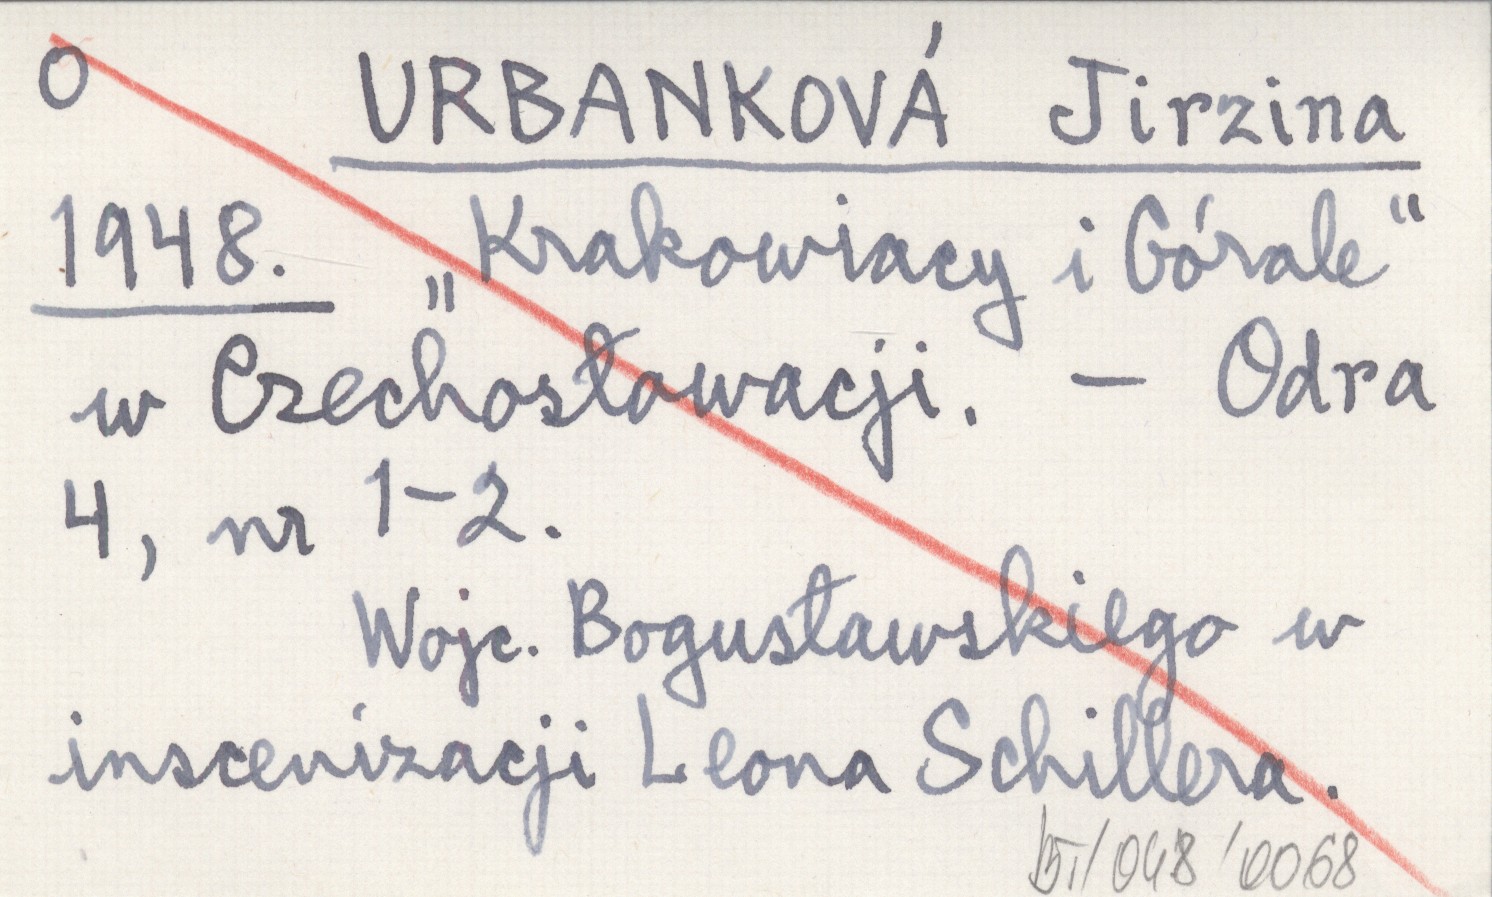 O URBANKOVÁ Jirzina
1948. „Krakowiacy i Górale"
w Czechosłowacji. – Odra
4, nr 1-2.
Wojc. Bogusławskiego w
inscenizacji Leona Schillera.
/048/0068